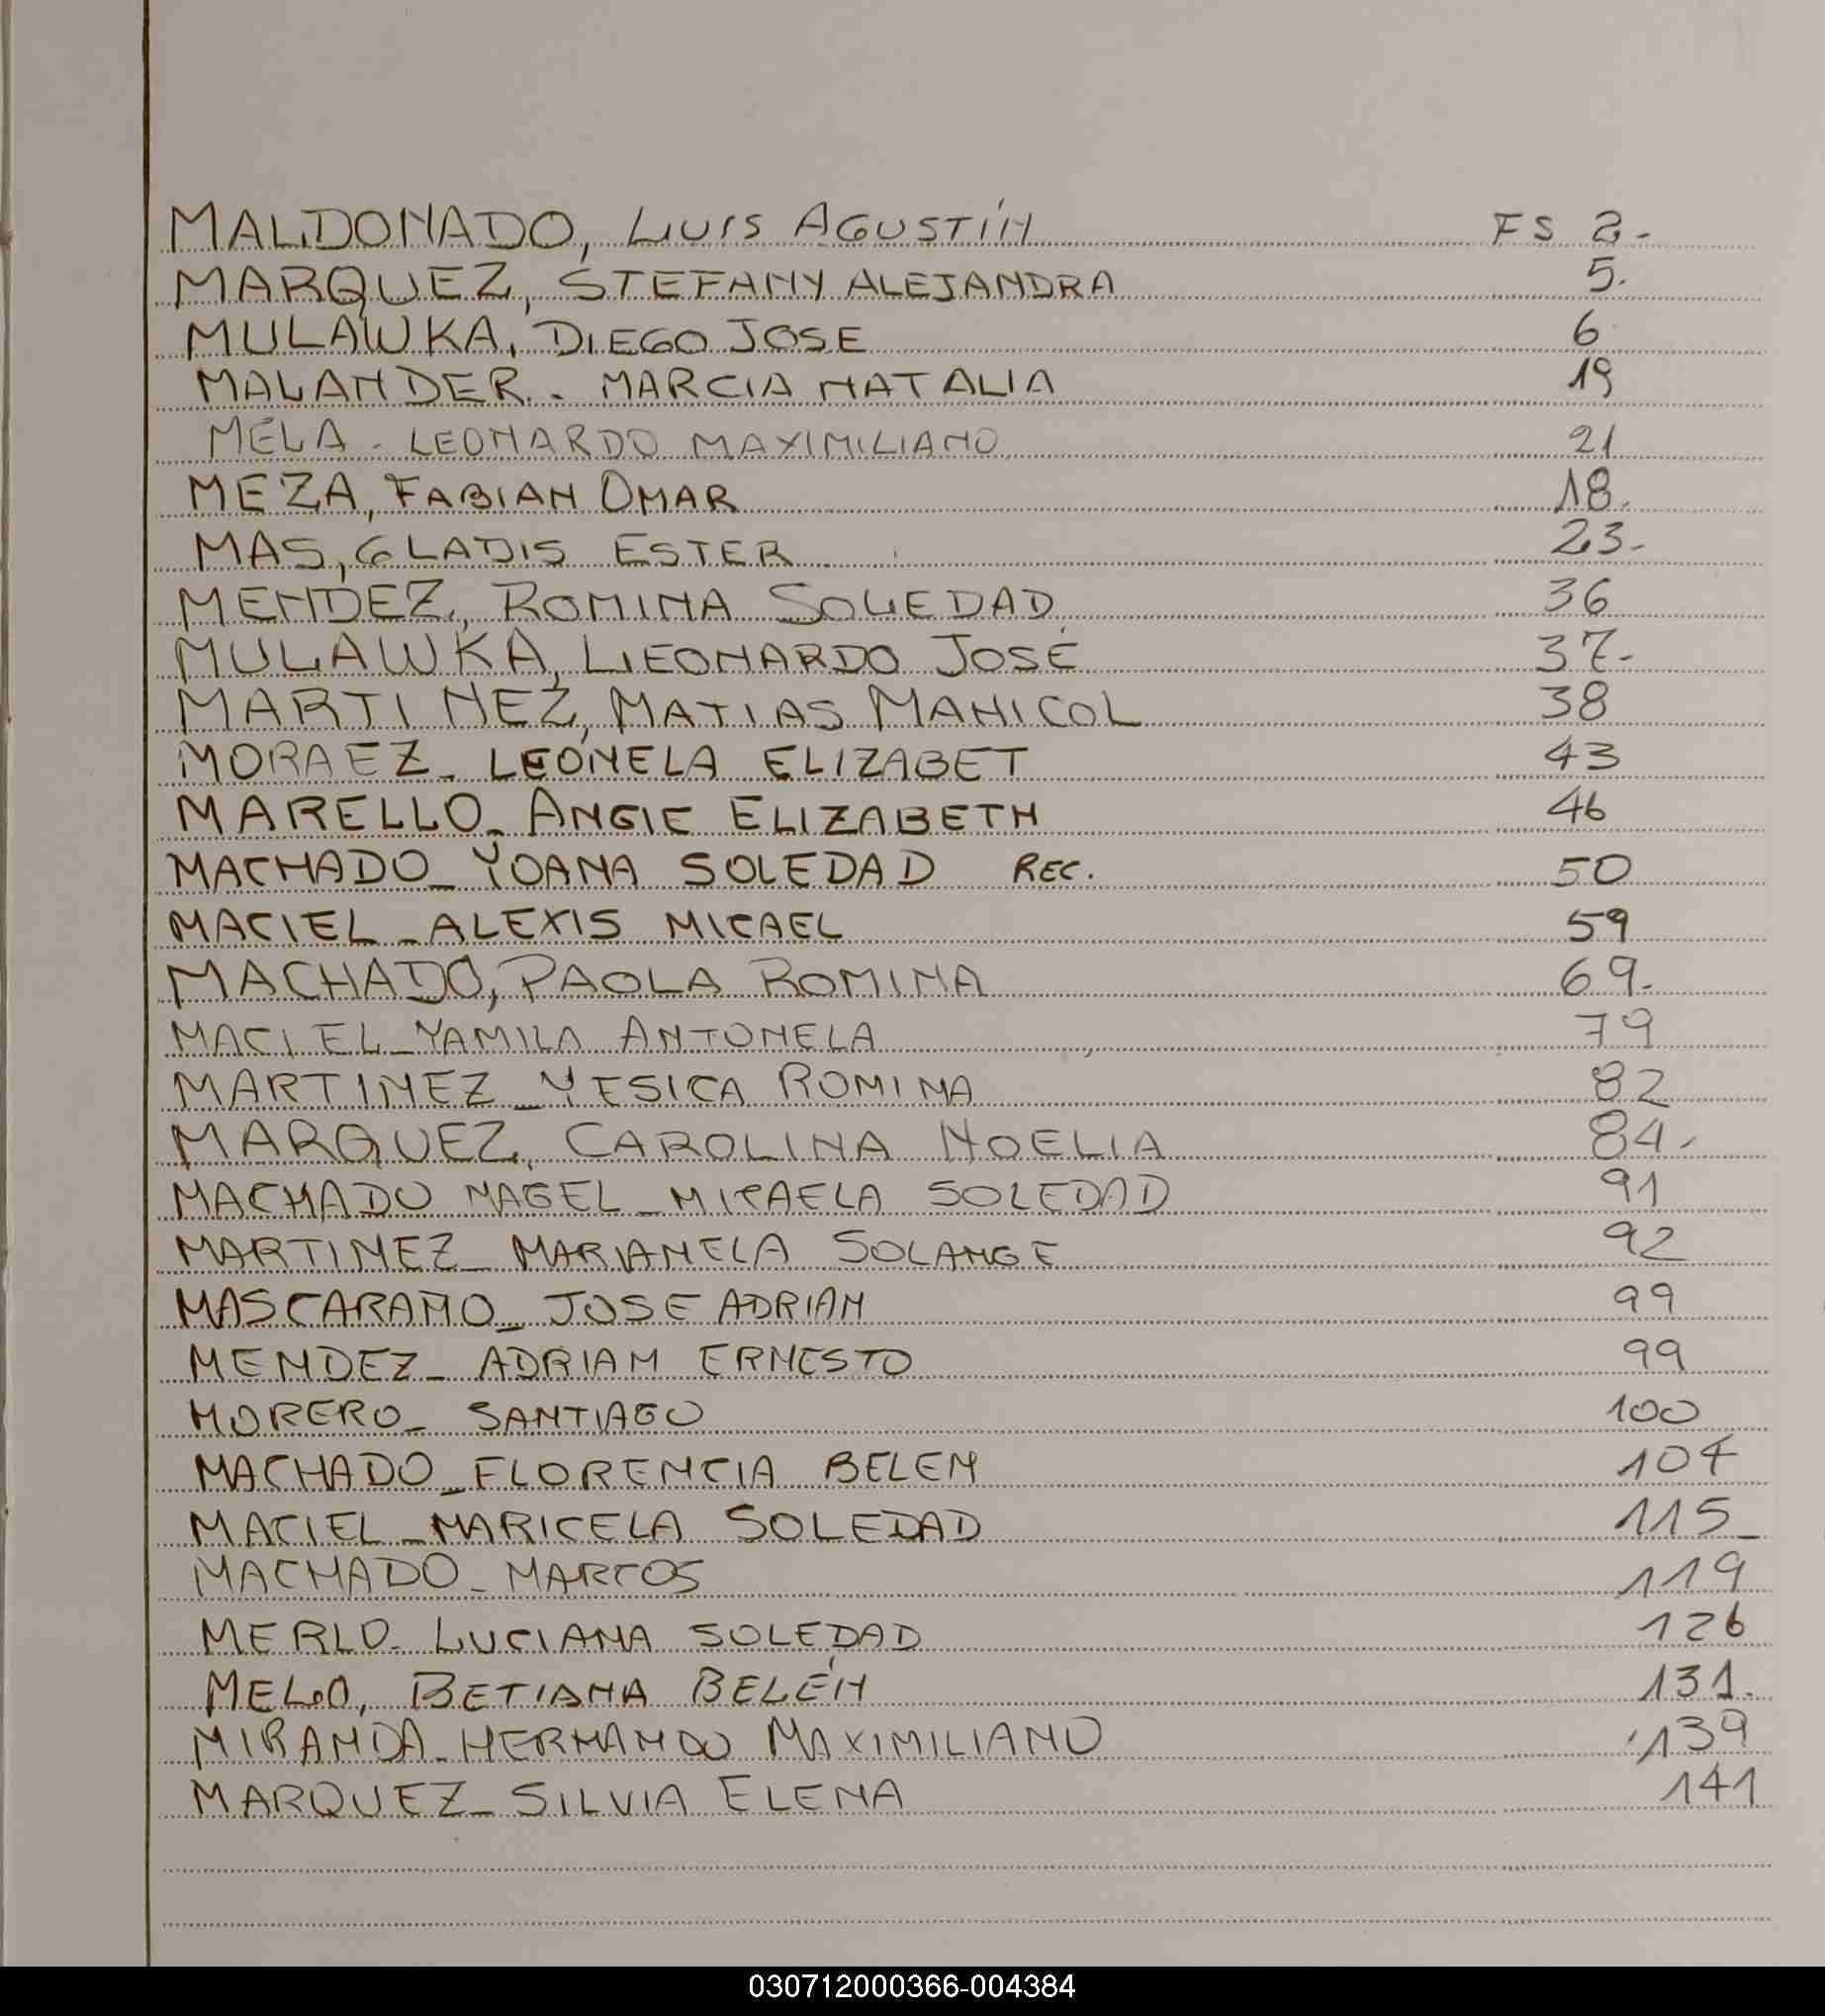 MALDONADO, LUIS AGUSTÍN FS 2.-
MARQUEZ, STEFANY ALEJANDRA 5.
MULAWKA, DIEGO JOSE 6
MALANDER - MARCIA NATALIA 19
MELA - LEONARDO MAXIMILIANO 21
MEZA, FABIAN OMAR 18.
MAS, GLADIS ESTER 23.-
MENDEZ, ROMINA SOLEDAD 36
MULAWKA, LEONARDO JOSÉ 37.-
MARTINEZ, MATIAS NAHICOL 38
MORAEZ - LEONELA ELIZABET 43
MARELLO - ANGIE ELIZABETH 46
MACHADO - YOANA SOLEDAD REC. 50
MACIEL - ALEXIS MICAEL 59
MACHADO, PAOLA ROMINA 69.-
MACIEL - YAMILA ANTONELA 79
MARTINEZ - YESICA ROMINA 82
MARQUEZ, CAROLINA NOELIA 84.-
MACHADO NAGEL - MICAELA SOLEDAD 91
MARTINEZ - MARIANELA SOLANGE 92
MASCARAÑO - JOSE ADRIAN 99
MENDEZ - ADRIAN ERNESTO 99
MORERO - SANTIAGO 100
MACHADO - FLORENCIA BELEN 104
MACIEL - MARICELA SOLEDAD 115 -
MACHADO - MARCOS 119
MERLO - LUCIANA SOLEDAD 126
MELO, BETIANA BELÉN 131.
MIRANDA - HERNANDO MAXIMILIANO 139
MARQUEZ - SILVIA ELENA 141
030712000366-004384